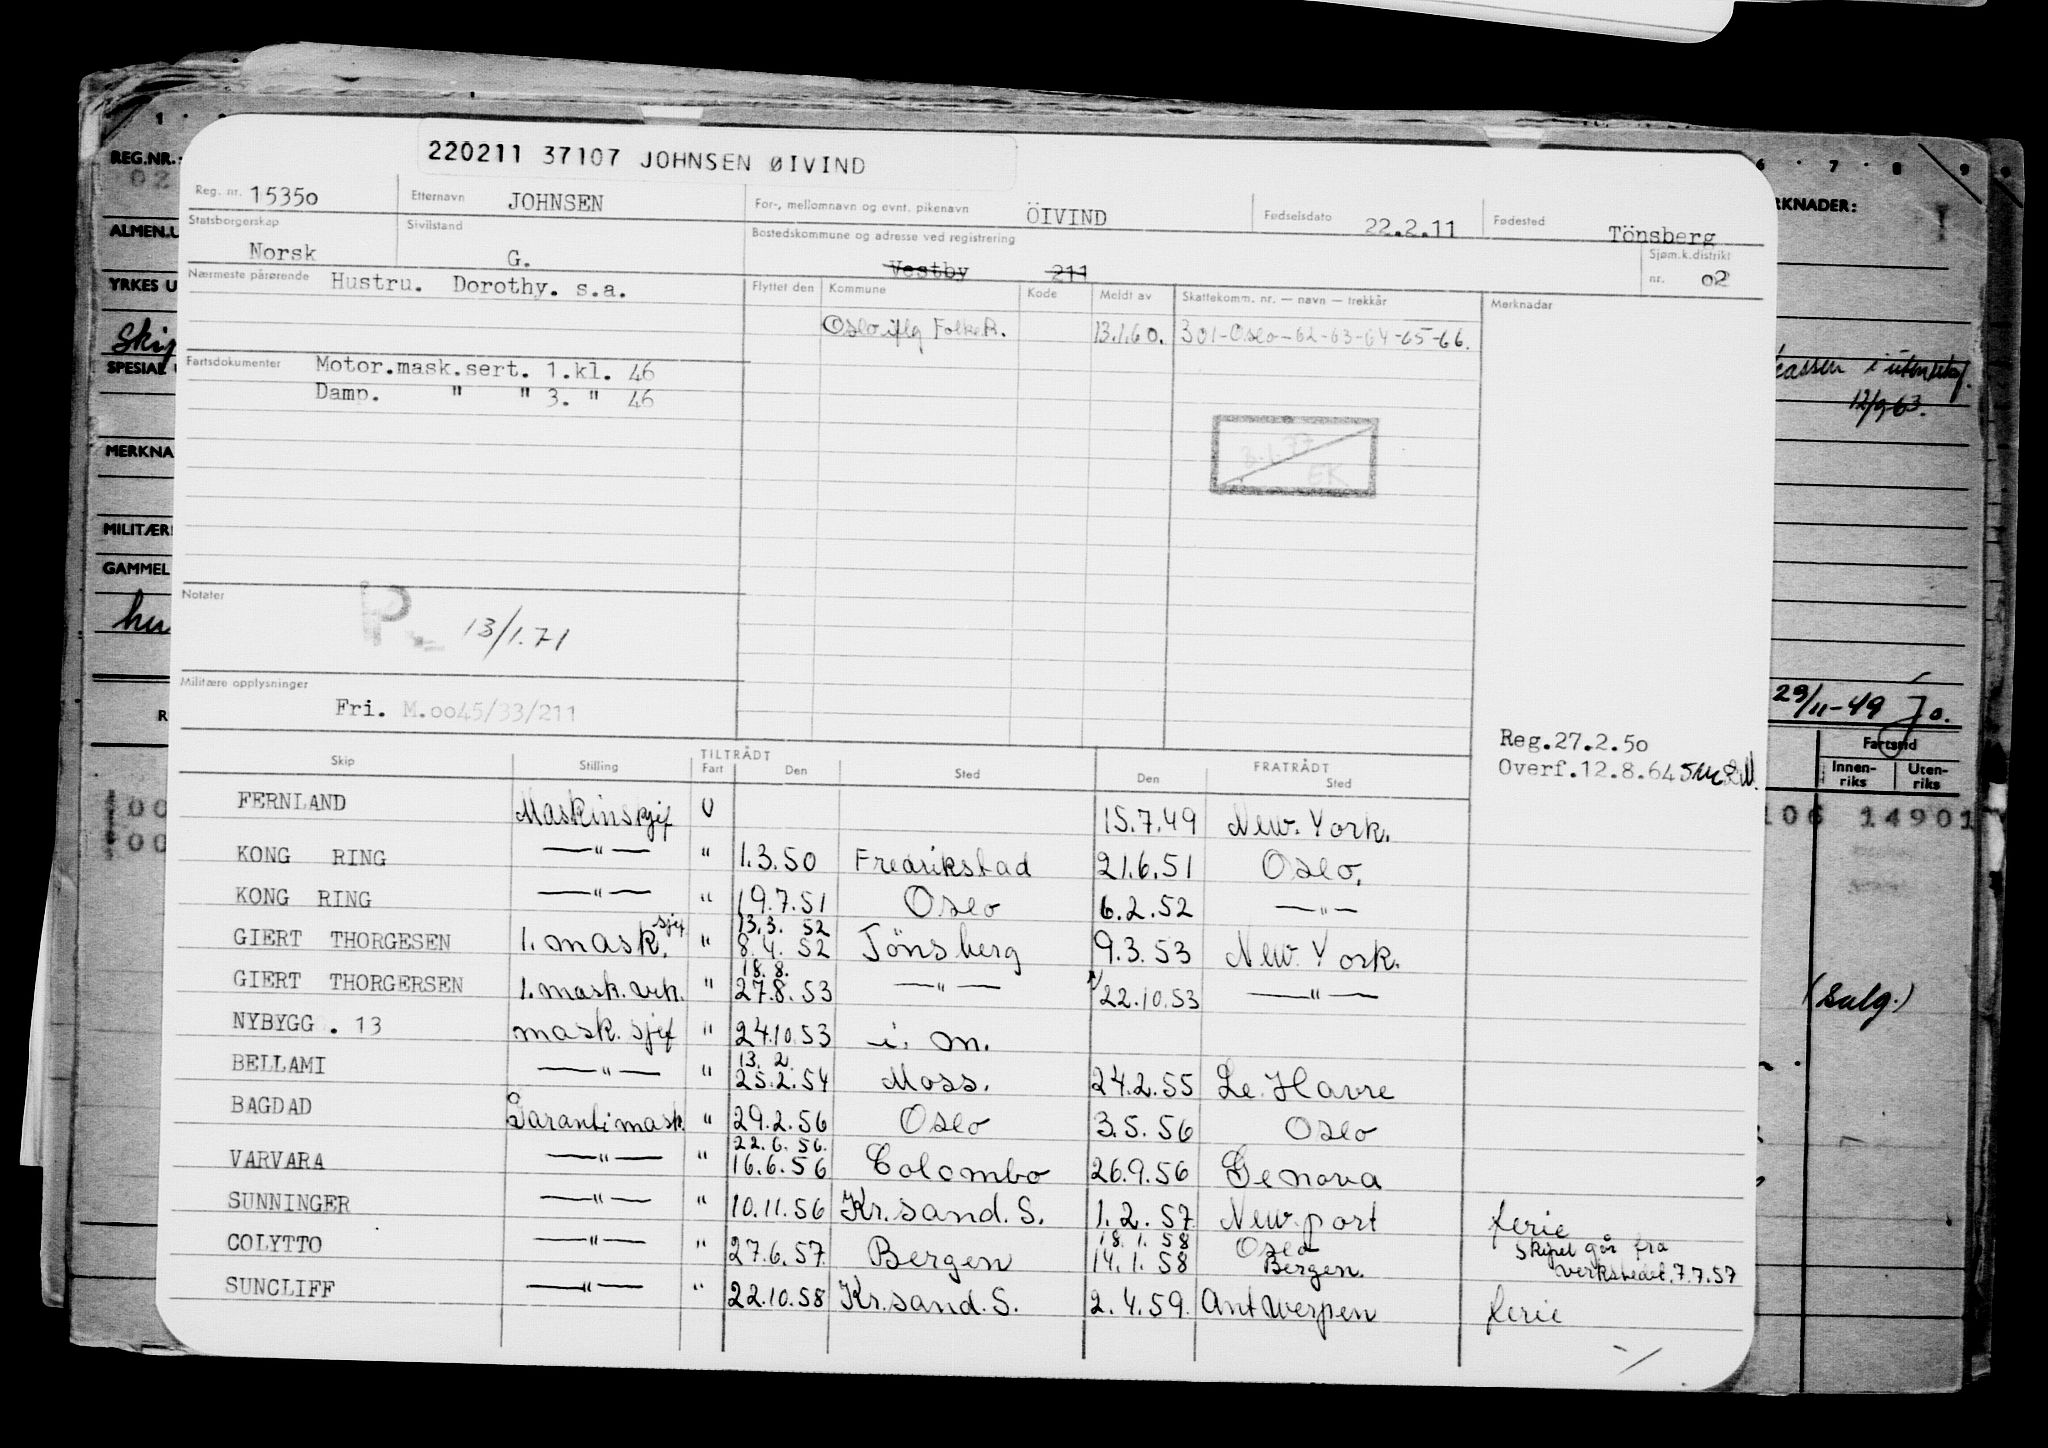 220211 37107 JOHNSEN ØIVIND
Reg. nr. 15350 Etternavn JOHNSEN For-, mellomnavn og evnt. pikenavn ÖIVIND Fødselsdato 22.2.11 Fødested Tönsberg
Statsborgerskap Norsk Sivilstand G. Bostedskommune og adresse ved registrering Vestby 211 Sjøm.k.distrikt nr. 02
Nærmeste pårørende Hustru. Dorothy. s.a. Flyttet den Kommune Kode Meldt av Skattekomm. nr. — navn — trekkår Merknader
Oslo iflg Folke R. 13.1.60. 301-Oslo-62-63-64-65-66.
Fartsdokumenter Motor.mask.sert. 1.kl. 46
Damp. " " 3. " 46
3.1.77
EK
Notater
R. 13/1.71
Militære opplysninger
Fri. M.0045/33/211
Reg.27.2.50
Overf.12.8.64
Skip Stilling TILTRÅDT Fart Den Sted FRATRÅDT Den Sted
FERNLAND Maskinskjef U 15.7.49 New. York.
KONG RING —"— " 1.3.50 Fredrikstad 21.6.51 Oslo.
KONG RING —"— " 19.7.51 Oslo 6.2.52 —"—
GIERT THORGESEN 1. mask. sjef " 13.3. 52 8.4. 52 Tönsberg 9.3.53 New. York.
GIERT THORGERSEN 1. mask. vik. " 18.8. 27.8.53 —"— 22.10.53 —"—
NYBYGG . 13 mask. sjef " 24.10.53 i. m.
BELLAMI —"— " 13. 2. 25.2.54 Moss. 24.2.55 Le. Havre
BAGDAD Garantimask. " 29.2.56 Oslo 3.5.56 Oslo
VARVARA —"— " 22.6.56. 16.6.56 Colombo 26.9.56 Genova
SUNNINGER —"— " 10.11.56 Kr.sand. S. 1.2.57 New.port ferie
COLYTTO —"— " 27.6.57. Bergen 18.1.58 Oslo 14.1.58 Bergen. Skipet går fra verkstedet. 7.7.57
SUNCLIFF —"— " 22.10.58 Kr.sand. S. 2.4.59. Antwerpen ferie
REG.NR.:
02
ALMEN.U
YRKES U
Skip
SPESIAL
MERKNA
MILITÆR
GAMMEL
hu
RKNADER:
12/9-63.
29/11-49 Jo.
Fartstid
Innen-riks Uten-riks
106 14901
(salg.)